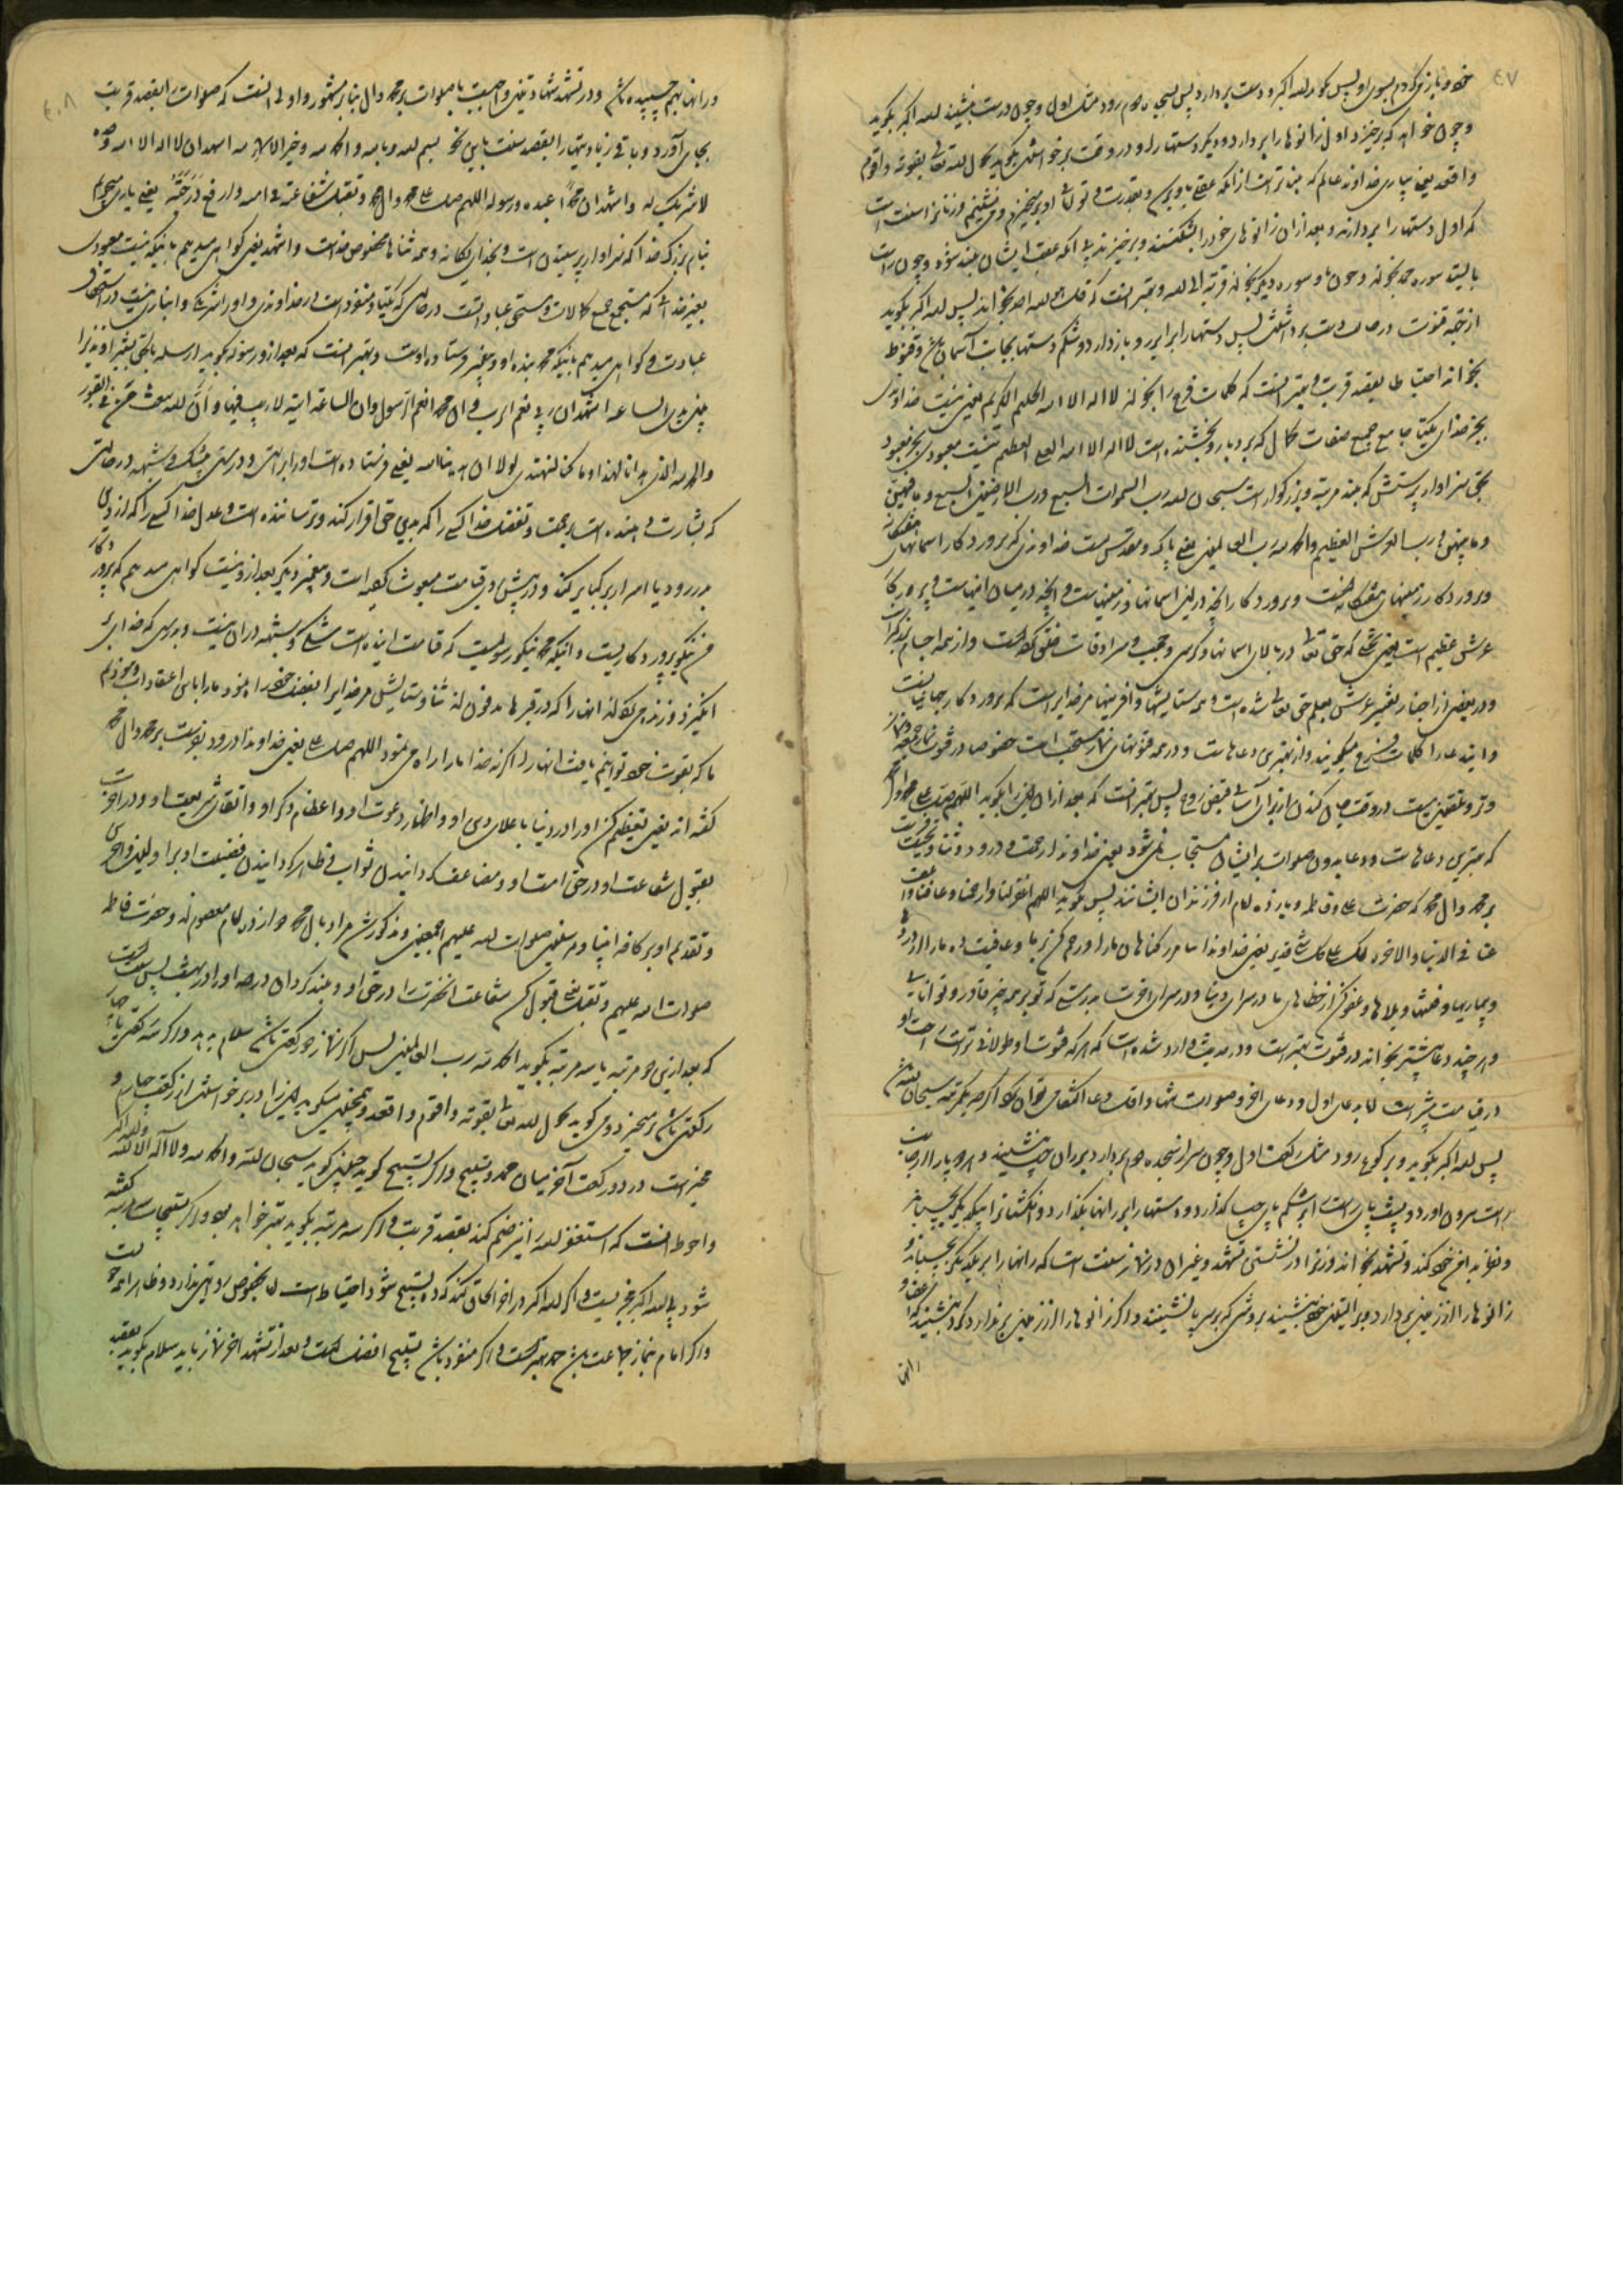 ۴۷
خود و بازمی‌گردم بسوی او پس گوید الله اکبر و دست بردارد پس بسجده دوم رود مثل اول و چون درست بنشیند الله اکبر بگوید
و چون خواهد که برخیزد اول زانوها را بردارد و دیگر دستها را و در وقت برخواستن بگوید بحول الله تعالی بقوته و اقوم
و اقعد یعنی بیاری خداوند عالم که
که اول دستها را بردارند و بعد از آن زانوهای خود را و برخیزند بی آنکه عقب ایشان بلند شود و چون راست
بایستد سوره حمد بخواند و چون و سوره دیگر بخواند قربة الی الله و بهتر آنست که قل هو الله احد بخواند پس الله اکبر بگوید
از جهة قنوت در حالت دست برداشتن پس دستها را برابر رو بازدارد و شکم دستها بجانب آسمان باشد و قنوت
بخواند احتیاطا بقصد قربت و بهتر آنست که کلمات فرج را بخواند لا اله الا الله الحلیم الکریم یعنی نیست خداوندی
بجز خدای یکتا جامع جمیع صفات کمال که بردبار و بخشنده است لا اله الا الله العلی العظیم نیست معبودی بجز معبود
بحق سزاوار پرستش که بلند مرتبه و بزرگوار است سبحان الله رب السموات السبع و رب الارضین السبع و ما فیهن
و ما بینهن و رب العرش العظیم و الحمد لله رب العالمین یعنی پاک و مقدس است خداوندی که پروردگار آسمانهای هفتگانه
و پروردگار زمینهای هفتگانه است و پروردگار آنچه در این آسمانها و زمینهاست و آنچه در میان اینهاست و پروردگار
عرش عظیم است یعنی تختی که حق تعالی در بالای آسمانها و کرسی و حجب و سرادقات خلق کرده است و از همه اجسام بزرگتر است
و در بعضی از اخبار تفسیر عرش بعلم حق تعالی شده است و همه ستایشها و آفرینها مر خدا را است که پروردگار جهانیانست
و این دعا را کلمات فرج میگویند و از بهترین دعاهاست و در همه قنوتهای نماز مستحب است خصوصا در قنوت نماز جمعه و نماز
وتر و تلقین میت در وقت جان کندن از برای آسانی قبض روح پس بهتر آنست که بعد از آن این را بگوید اللهم صل علی محمد و آل محمد
که بهترین دعاهاست و دعا بدون صلوات بر ایشان مستجاب نمی‌شود یعنی خداوندا رحمت و درود و ثنا و تحیت بفرست
بر محمد و آل محمد که حضرت علی و فاطمه و یازده امام از فرزندان ایشانند پس بگوید اللهم اغفر لنا و ارحمنا و عافنا و اعف
عنا فی الدنیا و الاخره انک علی کل شئ قدیر یعنی خداوندا بیامرز گناهان ما را و رحم کن بر ما و عافیت ده ما را از دردها
و بیماریها و فتنها و بلاها و عفو کن از خطاهای ما در سرای دنیا و در سرای آخرت بدرستی که تو بر همه چیز قادر و توانائی
و هر چند دعا بیشتر بخواند در قنوت بهتر است و در حدیث وارد شده است که هر که قنوت او طولانی‌تر است راحت او
در قیامت بیشتر است
پس الله اکبر بگوید و برکوع رود مثل رکعت اول و چون سر از سجده دوم بردارد بر ران چپ بنشیند و هر دو پا را از جانب
راست بیرون آورد و پشت پای راست را بر شکم پای چپ گذارد و دستها را بر رانها بگذارد و انگشتان را بیکدیگر بچسباند
و نظر بدامن خود کند و تشهد بخواند و زن را در نشستن تشهد و غیر آن در نماز سنت است که رانها را بر یکدیگر بچسباند و
زانوها را از زمین بردارد و بر الیتین خود بنشیند بروشی که بر سر پا نشینند و اگر زانوها را از زمین برندارد و گرد بنشیند
رانها
۴۰۸
و رانها بهم چسبیده باشد و در تشهد شهادتین واجبست با صلوات بر محمد و آل بنابر مشهور و اولی آنست که صلوات را بقصد قربت
بجای آورد و باقی زیادتیها را بقصد سنت باین نحو بسم الله و بالله و الحمد لله و خیر الاسماء لله اشهد ان لا اله الا الله وحده
لا شریک له و اشهد ان محمدا عبده و رسوله اللهم صل علی محمد و آل محمد و تقبل شفاعته فی امته و ارفع درجته یعنی یاری میجویم
بنام بزرگ خدا که سزاوار پرستیدن است و بخدای یگانه و همه ثناها مخصوص خداست و اشهد یعنی گواهی میدهم باینکه نیست معبودی
بغیر خدائی که مستجمع جمیع کمالات و مستحق عبادتست در حالی که یکتا و منفرد است در خداوندی و او را شریک و انبازی نیست در استحقاق
عبادت و گواهی میدهم باینکه محمد بنده او و پیغمبر و فرستاده اوست و بهتر آنست که بعد از و رسوله گوید ارسله بالحق بشیرا و نذیرا
بین یدی الساعه اشهد ان ربی نعم الرب و ان محمدا نعم الرسول و ان الساعة آتیة لا ریب فیها و ان الله یبعث من فی القبور
و الحمد لله الذی هدانا لهذا و ما کنا لنهتدی لولا ان هدانا الله یعنی فرستاده است او را براستی و درستی بیشک و شبهه در حالتی
که بشارت دهنده است برحمت و تفضل خدا کسی را که بدین حق اقرار کند و ترساننده است و عدل خدا کسی را که از دین
بدر رود یا اصرار بر کبایر کند و در پیش روی قیامت مبعوث گردیده است و پیغمبر دیگر بعد از او نیست گواهی میدهم که پروردگار
من نیکو پروردگاریست و اینکه محمد نیکو رسولیست که قیامت آینده است شکی و شبهه در آن نیست و بدرستی که خدا بر می
انگیزد و زنده میگرداند آنها را که در قبرها مدفون‌اند ثنا و ستایش مر خدا را بفضل خود را بنمود ما را باین اعتقادات و نبودیم
ما که بقوت خود توانیم یافت اینها را اگر نه خدا ما را راه می‌نمود اللهم صل علی یعنی خداوندا درود بفرست بر محمد و آل محمد
گفته‌اند یعنی تعظیم کن او را در دنیا باعلای دین او و اظهار دعوت او و اعظام ذکر او و ابقای شریعت او و در آخرت
بقبول شفاعت او در حق امت او و مضاعف گردانیدن ثواب و ظاهر گردانیدن فضیلت او بر اولین و آخرین
و تقدیم او بر کافه انبیا و مرسلین صلوات الله علیهم اجمعین و مذکور شد مراد بآل محمد دوازده امام معصوم‌اند و حضرت فاطمه
صلوات الله علیهم و تقبل یعنی قبول کن شفاعت آنحضرت را در حق او و بلند گردان درجه او را در بهشت پس سنت است
که بعد از این دو مرتبه یا سه مرتبه بگوید الحمد لله رب العالمین پس اگر نماز دو رکعتی باشد سلام بدهد و اگر سه رکعتی یا چهار
رکعتی باشد برمیخیزد و می‌گوید بحول الله تعالی بقوته و اقوم و اقعد و همچنین میگوید این را در برخواستن از رکعت چهارم و
مخیر است در دو رکعت آخر میان حمد و تسبیح و اگر تسبیح گوید چنین گوید سبحان الله و الحمد لله و لا اله الا الله و الله اکبر
و احوط آنست که استغفر الله را نیز ضم کند بقصد قربت و اگر سه مرتبه بگوید بهتر خواهد بود و اگر تسبیحات سه مرتبه گفته
شود بی الله اکبر مجزیست و اگر الله اکبر در آخر الحاق کند که ده تسبیح شود احتیاط است اما بخصوص روایتی ندارد و ظاهرا همه خوبست
و اگر امام نماز جماعت باشد حمد بهتر است و اگر منفرد باشد تسبیح افضل است و بعد از تشهد آخر نماز باید سلام بگوید بقصد